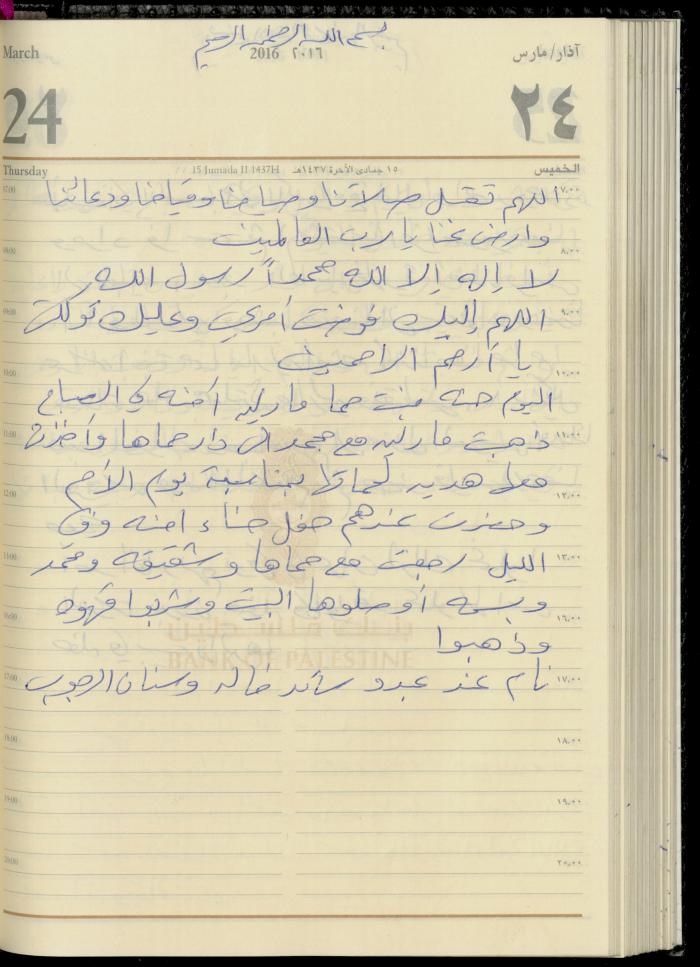 بسم الله الرحمن الرحيم
March 2016 ٢٠١٦ آذار/مارس
24 ٢٤
Thursday 15 Jumada II 1437H ١٥ جمادى الآخرة ١٤٣٧هـ الخميس
اللهم تقبل صلاتنا وصيامنا وقيامنا ودعائنا
وارض عنا يا رب العالمين
لا إله إلا الله محمداً رسول الله
اللهم إليك فوضت أمري وعليك توكلت
يا أرحم الراحمين
اليوم حنه بنت حما ماريه امنه في الصباح
ذهبت ماريه مع محمد الى دار حماها وأخذت
معها هديه لحماتها بمناسبة يوم الأم
وحضرت عندهم حفل حناء امنه وفي
الليل رجعت مع حماها وشقيقه ومحمد
وبسمه أوصلوها البيت وشربوا قهوه
وذهبوا
نام عند عبدو سائد خاله وسنان
BANK OF PALESTINE
بنك فلسطين
07:00 ٧،٠٠
08:00 ٨،٠٠
09:00 ٩،٠٠
10:00 ١٠،٠٠
11:00 ١١،٠٠
12:00 ١٢،٠٠
١٣،٠٠
16:00 ١٦،٠٠
17:00 ١٧،٠٠
18:00 ١٨،٠٠
19:00 ١٩،٠٠
20:00 ٢٠،٠٠